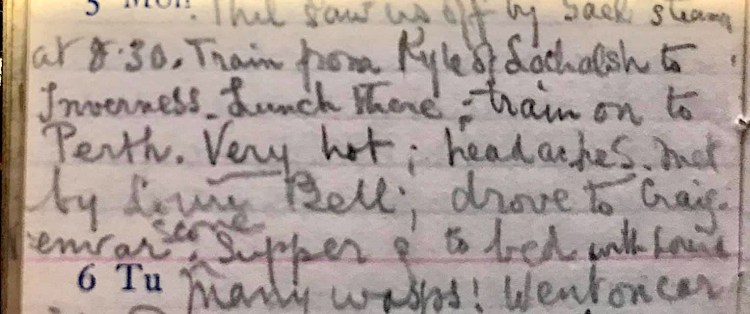 5 Mon. Phil saw us off by back steamer
at 8.30. Train from Kyle of Lochalsh to
Inverness. Lunch there; train on to
Perth. Very hot; headaches. Met
by Louie Bell; drove to Craig-
Scone
; Supper & to bed with Louie
6 Tu Many wasps! Went on car